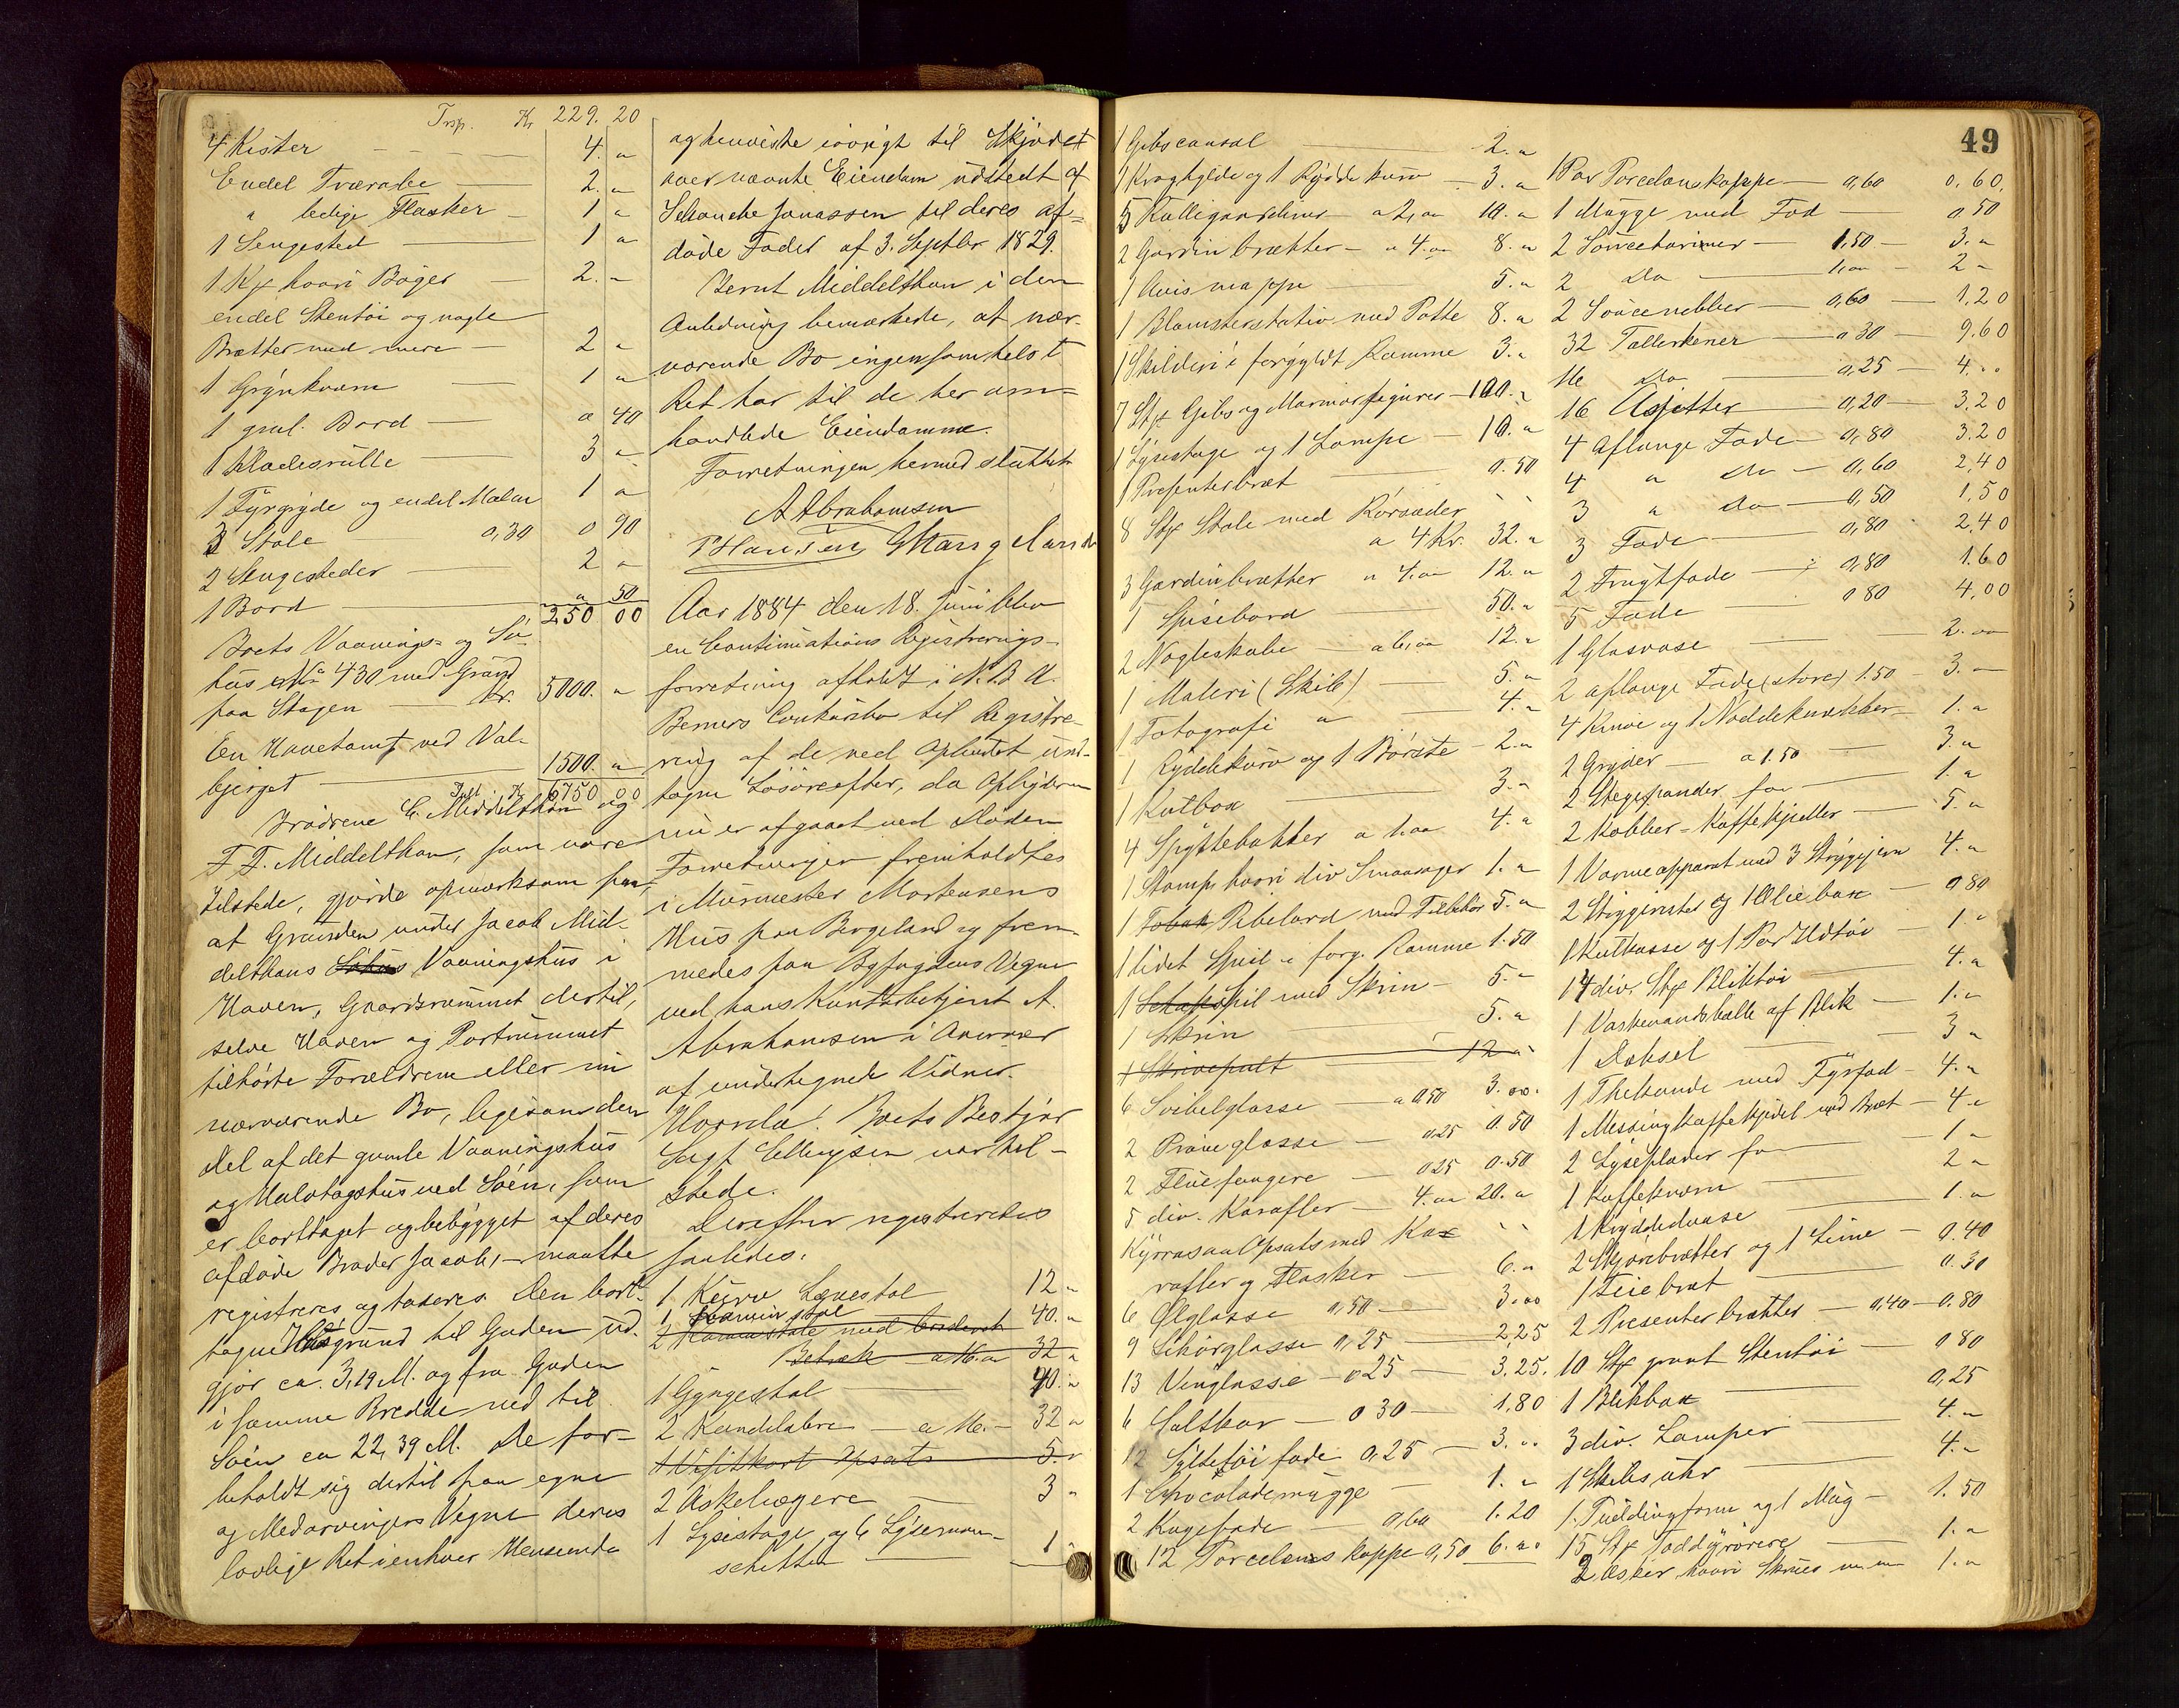 Trsp. Kr 229. 20
4 Kister 4. "
Endel Trærabe 2. "
" ledige Flasker 1 "
1 Sengested 1 "
1 Kjt hvori Bøger 2. "
endel Stentøi og nogle
Brætter med mere 2 "
1 Grynkværn 1 "
1 gml. Bord " 40
1 Klædesrulle 3 "
1 Fyrgryde og endel 1 "
3 Stole 0,30 0 90
2 Sengesteder 2 "
1 Bord " 50
250 00
Boets Vaanings- og Sø
hus No 430 med Grund
paa Skagen Kr. 5000. "
En Havetomt ved Val-
bjerget 1500. "
Tilsl. Kr 6750 00
Brødrene E. Middelthon og
T. T. Middelthon, som vare
tilstede, gjorde opmærksom paa,
at Grunden under Jacob Mid-
delthons Søhus Vaaningshus i
Haven, Gaardsrummet dertil,
selve Haven og Portrummet
tilhørte Forældrene eller nu
nærværende Bo, ligesom den
Del af det gamle Vaaningshus
og Halvtagshus ved Søen, som
er borttaget og bebygget af deres
afdøde Broder Jacob, – maatte
registreres og taxeres. Den bort-
tagne Husgrund til Gaden ud-
gjør ca. 3,19 M. og fra Gaden
i samme Bredde ned til
Søen ca 22,39 M. De for-
beholdt sig dertil paa egne
og Medarvingers Vegne deres
lovlige Ret i enhver Henseende
og henviste iøvrigt til Skjødet
over nævnte Eiendom udstedt af
Schanche Jonassen til deres af-
døde Fader af 3. Septbr 1829.
Bernt Middelthon i den
Anledning bemærkede, at nær-
værende Bo ingensomhelst
Ret har til de her om-
handlede Eiendomme.
Forretningen hermed sluttet
A Abrahamsen
P Hansen G Mangeland
Aar 1884 den 18. Juni blev
en Continuations Registrerings-
forretning afholdt i N. B. A.
Berners Conkursbo til Registre-
ring af de ved Opbudet und-
tagne Løsøreefter, da Opbyderen
nu er afgaaet ved Døden
Forretningen fremholdtes
i Murmester Mortensens
Hus paa Bergeland og frem-
medes paa Byfogdens Vegne
ved hans Kontorbetjent A.
Abrahamsen i Overvær
af undertegnede Vidner.
Hvorda! Boets Bestyrer
Sagf. Ellingsen var til-
stede.
Derefter registreredes
saaledes.
1 Kurv Lænestol 12 "
1 Kamin stol 40. "
2 Kaminstole med broderet
Betræk a 16. " 32 "
1 Gyngestol 40. "
2 Kandelabre a 16. – 32 "
1 Visitkort Opsats 5. "
2 Askebægere 3 "
1 Lysestage og 6 Lyseman-
schetter 1 "
49
1 Gibsconsol 2. "
1 Kraghylde og 1 Rydde kurv 3. "
5 Kulligardiner a 2, " 10. "
2 Gardin brætter – a 4. " 8. "
1 Avis mappe 5. "
1 Blomsterstativ med Potte 8. "
1 Skilderi i forgyldt Ramme 3. "
7 Stk Gibs og Marmorfigurer 100. "
1 Lysestage og 1 Lampe 10. "
1 Presenterbret 0.50
8 Stk Stole med Rørsæder
a 4 Kr. 32. "
3 Gardinbrætter a 4. " 12. "
1 Spisebord 50. "
2 Nøgleskabe a 6, " 12. "
1 Maleri (Skib) 5. "
1 Fotografi " 4. "
1 Ryddekurv og 1 Børste 2. "
1 Kulbox 3. "
4 Spyttebakker a 1. " 4. "
1 Stamp hvori div Smaating 1. "
1 Tobak Pibebord med Tilbehør 5. "
1 lidet Speil i forg. Ramme 1.50
1 Schakspil med Skrin 5. "
1 Skrin 5. "
1 Skrivepult 12 "
6 Svibelglasse a 0.50 3.00.
2 Prøveglasse 0.25 0.50
2 Fluefangere 0.25 0.50
5 div. Karafler 4. " 20. "
Kyrrasaa Opsats med Ka-
rafler og Flasker 6. "
6 Ølglasse 0,50 3.00
9 Likørglasse 0,25 2.25
13 Vinglasse – 0.25 3.25.
6 Saltkar – 0 30 1,80
12 Syltetøi fade 0,25 3. "
1 Chocolademugge 1. "
2 Kagefade 0,60 1.20
12 Porcelæns koppe 0,50 6. "
1 Par Porcelæns koppe 0,60 0.60.
1 Mugge med Fad 0.50
2 Souceterriner 1,50 3. "
2 Do 1. " 2 "
2 Soucenebber 0,60 1.20
32 Tallerkener a 30 9.60
16 Do 0,25 4. "
16 Asjetter 0,20 3.20
4 aflange Fade 0,80 3.20
4 " do 0,60 2.40
3 " do 0,50 1.50
3 Fade 0,80 2.40
2 Frugtfade 0,80 1.60
5 Fade 0 80 4,00
1 Glasvase 2. "
2 aflange Fade (store) 1.50 3. –
4 Knive og 1 Nøddeknækker 1. "
2 Gryder a 1.50 3. "
2 Stegepander for 1. "
2 Kobber-Kaffekjedler 5. "
1 Varmeapparat med 3 Strygejern 4. "
2 Stryggrister og 1 Oliebox 0 80
1 Kulkasse og 1 Par Ildtøi 1. "
14 div. Stk Bliktøi 4. "
1 Vaskevandsballe af Blik 1. "
1 Deksel 3 "
1 Thekande med Fyrfad 4. "
1 Missing Kaffekjedel med Bræt 4. "
2 Lyseplader for 1 "
1 Kaffekværn 2 "
1 Krydderdaase 1. "
2 Skjærebrætter og 1 Lime 0.40
1 Feiebræt 0.30
2 Presenterbrætter 0,40 – 0.80
10 Stk graat Stentøi 0 80
1 Blikbox 0,25
3 div. Lamper 4. "
1 Skibsuhr 4. "
1. Puddingform og 1 Mug 1.50
15 Stk Toddyrørere 1. "
2 Æsker hvori Skruer m m 1. "